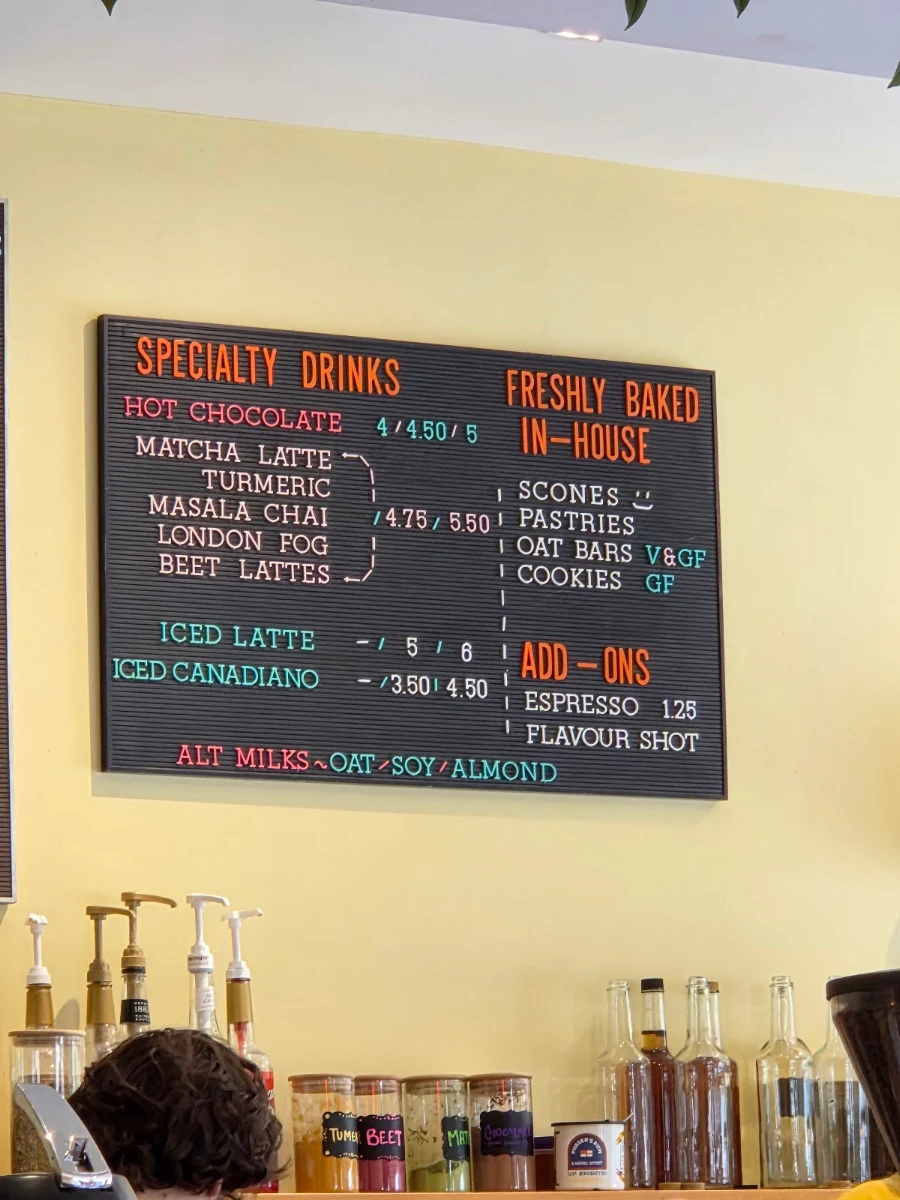 SPECIALTY DRINKS
HOT CHOCOLATE 4/4.50/5
MATCHA LATTE
TURMERIC
MASALA CHAI /4.75/5.50
LONDON FOG
BEET LATTES
ICED LATTE -/5/6
ICED CANADIANO -/3.50/4.50
ALT MILKS~OAT/SOY/ALMOND
FRESHLY BAKED
IN-HOUSE
SCONES
PASTRIES
OAT BARS V&GF
COOKIES GF
ADD-ONS
ESPRESSO 1.25
FLAVOUR SHOT
TUME
BEET
MAT
CHOCOLATE